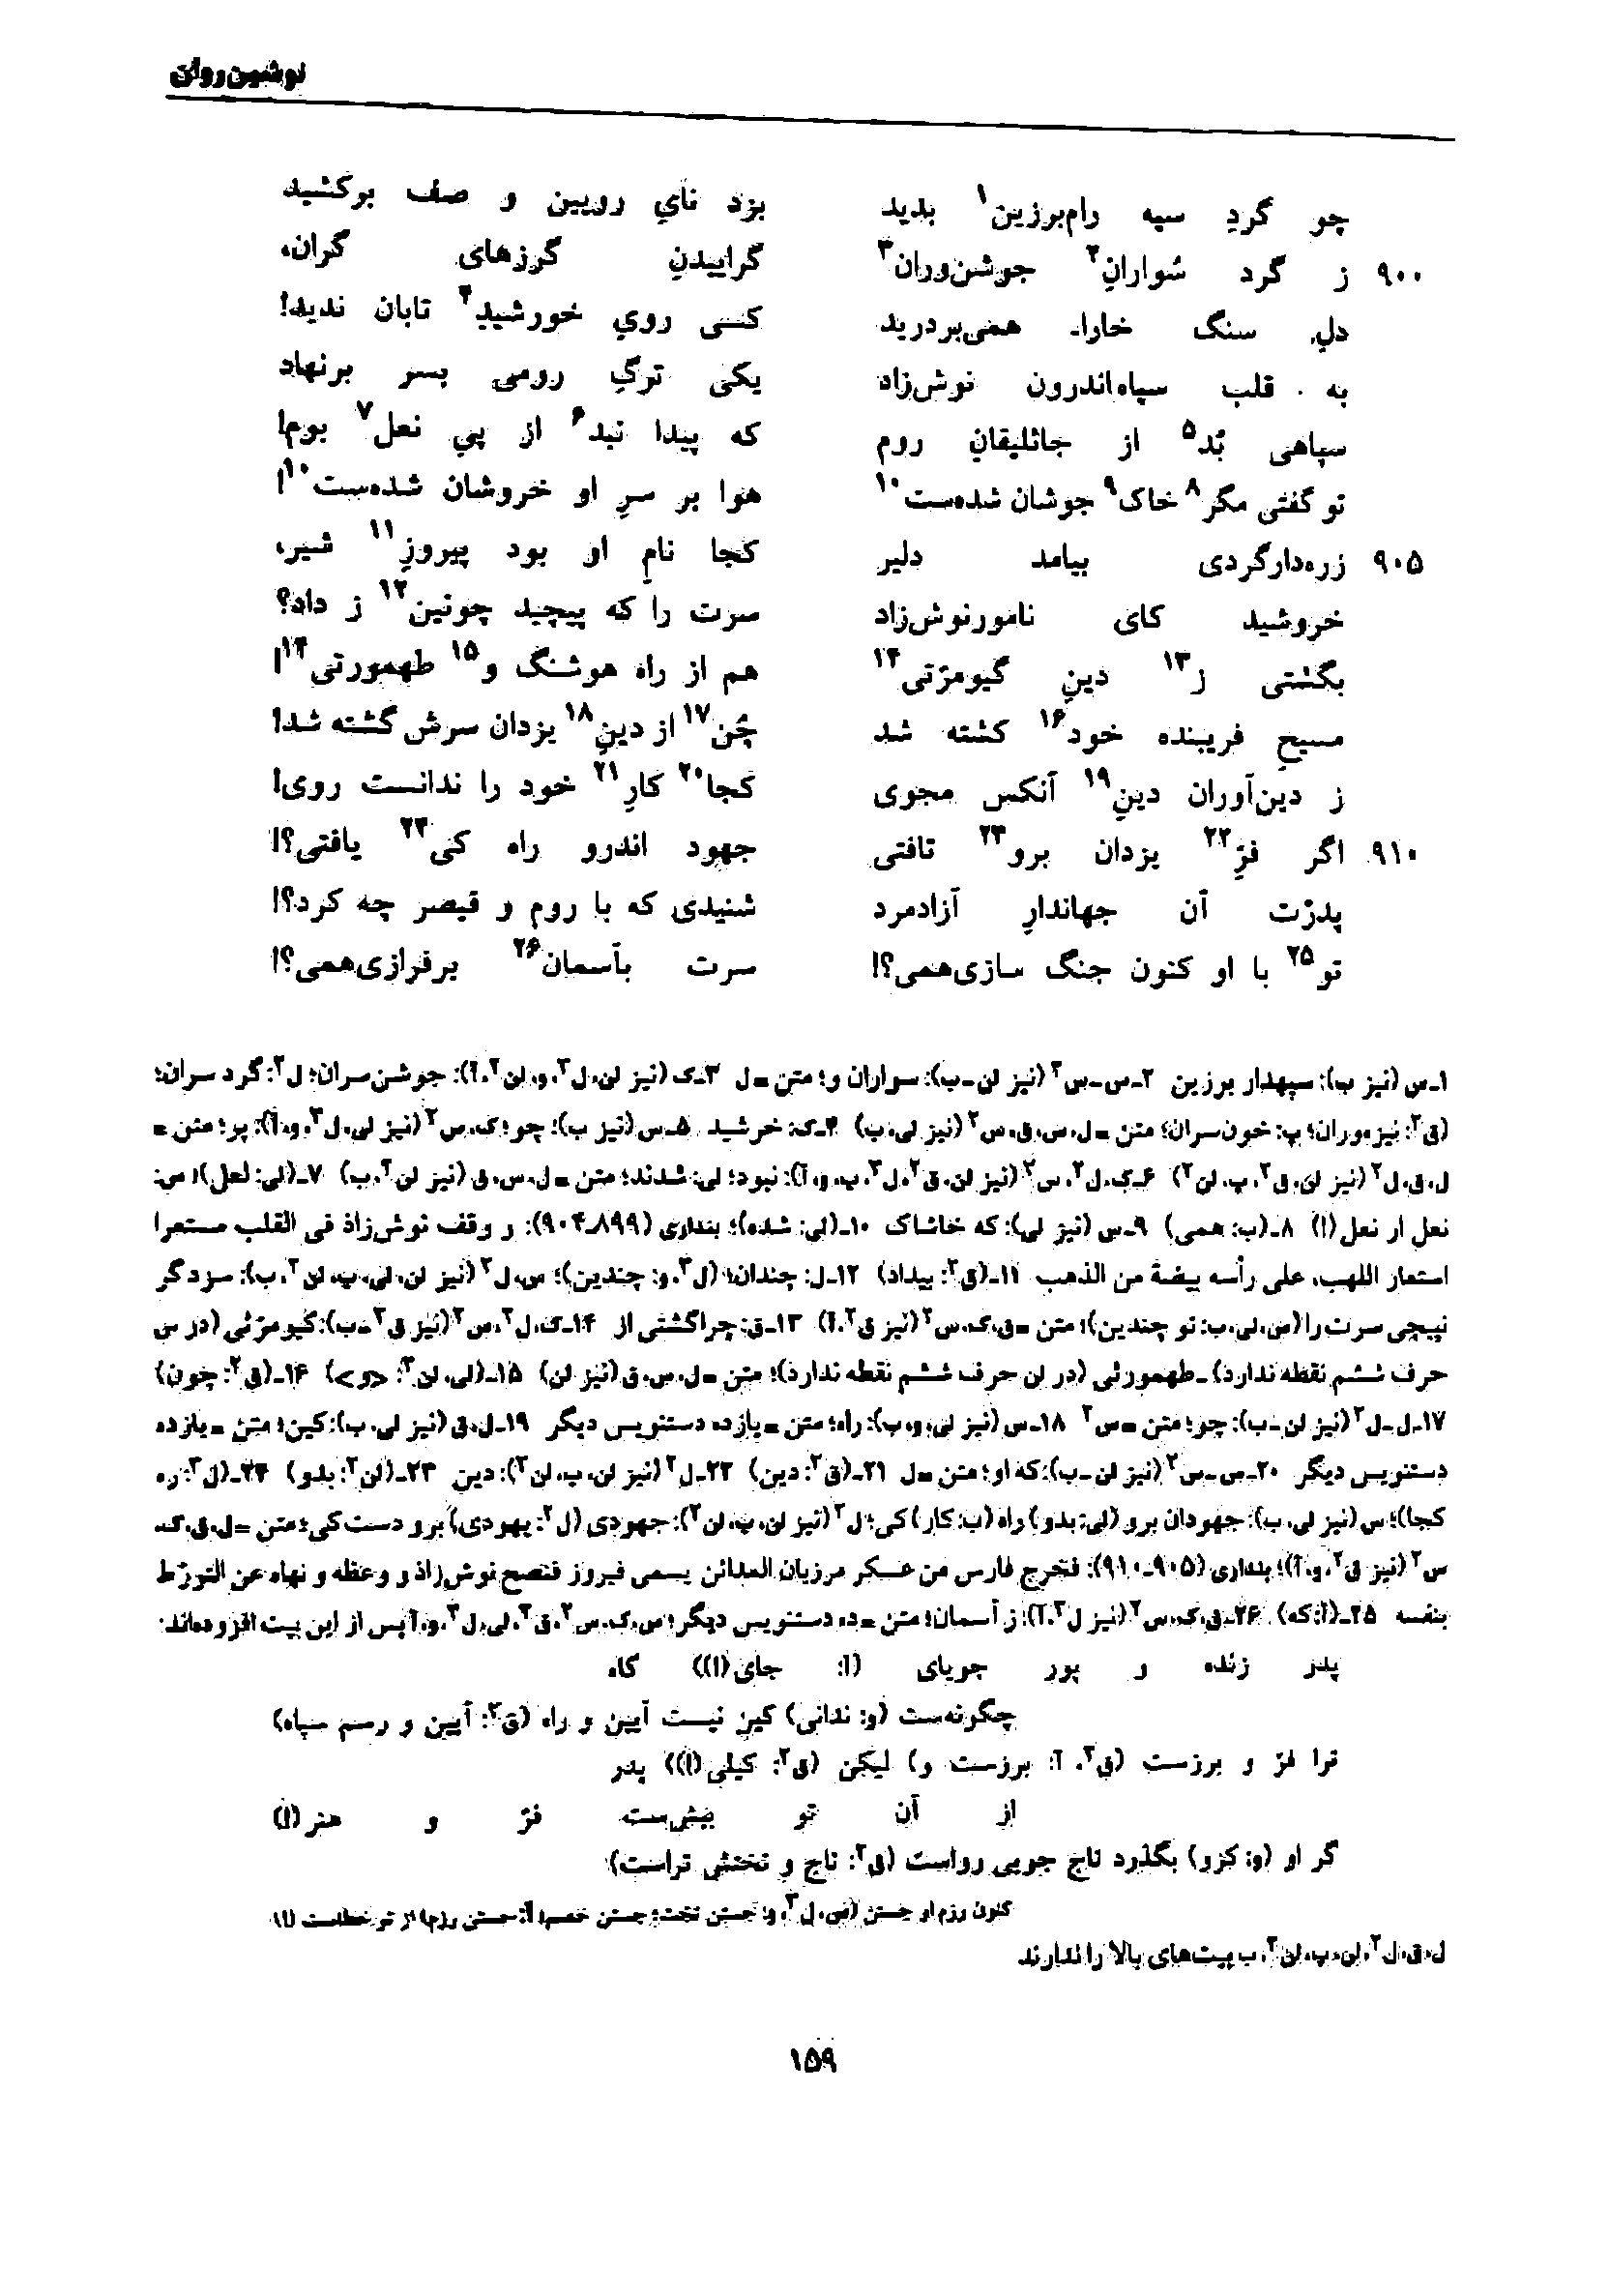 نوشین‌روان
چو گردِ سپه رام‌برزین۱ بدید بزد نایِ رویین و صف برکشید
۹۰۰ ز گرد سُوارانِ۲ جوشن‌وران۳ گراییدنِ گرزهای گران،
دلِ سنگ خارا همی‌بردرید کسی رویِ خورشیدِ۴ تابان ندید!
به قلب سپاه‌اندرون نوش‌زاد یکی ترگِ رومی بسر برنهاد
سپاهی بُد۵ از جاثلیقانِ روم که پیدا نبد۶ از پیِ نعل۷ بوم!
تو گفتی مگر۸ خاک۹ جوشان شده‌ست۱۰ هوا بر سرِ او خروشان شده‌ست۱۰!
۹۰۵ زره‌دارگردی بیامد دلیر کجا نامِ او بود پیروزِ۱۱ شیر،
خروشید کای نامورنوش‌زاد سرت را که پیچید چونین۱۲ ز داد؟
بگشتی ز۱۳ دینِ گیومرّتی۱۴ هم از راه هوشنگ و۱۵ طهمورتی۱۴!
مسیحِ فریبنده خود۱۶ کشته شد چُن۱۷ از دینِ۱۸ یزدان سرش گشته شد!
ز دین‌آوران دینِ۱۹ آنکس مجوی کجا۲۰ کارِ۲۱ خود را ندانست روی!
۹۱۰ اگر فرِّ۲۲ یزدان برو۲۳ تافتی جهود اندرو راه کی۲۴ یافتی؟!
پدرْت آن جهاندارِ آزادمرد شنیدی که با روم و قیصر چه کرد؟!
تو۲۵ با او کنون جنگ سازی‌همی؟! سرت بآسمان۲۶ برفرازی‌همی؟!
۱ـ س (نیز ب): سپهدار برزین ۲ـ س ـ س۲ (نیز لن ـ ب): سواران و؛ متن = ل ۳ـ ک (نیز لن، ل۳، و، لن۲، آ): جوشن‌سران؛ ل۲: گرد سران؛
(ق۲: نیزه‌وران؛ پ: خون‌سران؛ متن = ل، س، ق، س۲ (نیز لی، ب) ۴ـ ک: خرشید ۵ـ س (نیز ب): چو؛ ک، س۲ (نیز لی، ل۳، و، آ): پر؛ متن =
ل، ق، ل۲ (نیز لن، ق۲، پ، لن۲) ۶ـ ک، ل۲، س۲ (نیز لن، ق۲، ل۳، پ، و، آ): نبود؛ لی: شدند؛ متن = ل، س، ق (نیز لن۲، ب) ۷ـ (لی: لعل)؛ س:
نعل ار نعل (!) ۸ـ (ب: همی) ۹ـ س (نیز لی): که خاشاک ۱۰ـ (لی: شده)؛ بنداری (۸۹۹ـ۹۰۴): و وقف نوش‌زاذ فی القلب مستعرا
استعار اللهب، علی رأسه بیضة من الذهب ۱۱ـ (ق۲: بیداد) ۱۲ـ ل: چندان؛ (ل۳، و: چندین)؛ س، ل۲ (نیز لن، لی، پ، لن۲، ب): سزد گر
نپیچی سرت را (س، لی، ب: تو چندین)؛ متن = ق، ک، س۲ (نیز ق۲، آ) ۱۳ـ ق: چرا گشتی از ۱۴ـ ک، ل۲، س۲ (نیز ق۲ ـ ب): کیومرثی (در س
حرف ششم نقطه ندارد) ـ طهمورثی (در لن حرف ششم نقطه ندارد)؛ متن = ل، س، ق (نیز لن) ۱۵ـ (لی، لن۲: <و>) ۱۶ـ (ق۲: چون)
۱۷ـ ل ـ ل۲ (نیز لن ـ ب): چو؛ متن = س۲ ۱۸ـ س (نیز لی، و، ب): راه؛ متن = یازده دستنویس دیگر ۱۹ـ ل، ق (نیز لی، ب): کین؛ متن = یازده
دستنویس دیگر ۲۰ـ س ـ س۲ (نیز لن ـ ب): که او؛ متن = ل ۲۱ـ (ق۲: دین) ۲۲ـ ل۲ (نیز لن، پ، لن۲): دین ۲۳ـ (لن۲: بدو) ۲۴ـ (ل۳: ره
کجا)؛ س (نیز لی، ب): جهودان برو (لی: بدو) راه (ب: کار) کی؛ ل۲ (نیز لن، پ، لن۲): جهودی (ل۲: یهودی) برو دست کی؛ متن = ل، ق، ک،
س۲ (نیز ق۲، و، آ)؛ بنداری (۹۰۵ـ۹۱۰): فخرج فارس من عسکر مرزبان المدائن یسمی فیروز فنصح نوش‌زاذ و وعظه و نهاه عن التورّط
بنفسه ۲۵ـ (آ: که) ۲۶ـ ق، ک، س۲ (نیز ل۳، آ): ز آسمان؛ متن = ده دستنویس دیگر؛ س، ک، س۲، ق۲، لی، ل۳، و، آ پس از این بیت افزوده‌اند:
پدر زنده و پور جویای (آ: جای(!)) گاه
چگونه‌ست (و: ندانی) کین نیست آیین و راه (ق۲: آیین و رسم سپاه)
ترا فرّ و برزست (ق۲، آ: برزست و) لیکن (ق۲: کیلی(!)) پدر
از آن تو بیش‌ست فرّ و هنر (!)
گر او (و: کزو) بگذرد تاج جویی رواست (ق۲: تاج و تختش تراست)
کنون رزم او جستن (س، ل۳، و: جستن تخت؛ آ: جستن رزم) از تو خطاست (!)
ل، ق، ل۲، لن، پ، لن۲، ب بیت‌های بالا را ندارند
۱۵۹